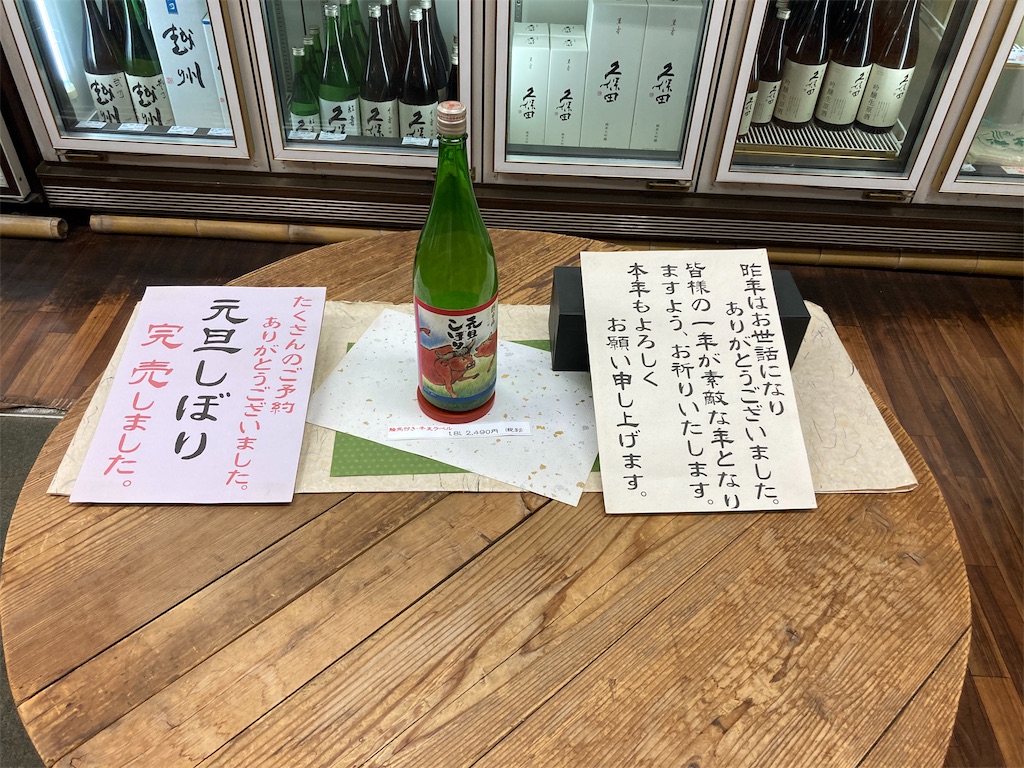 たくさんのご予約
ありがとうございました。
元旦しぼり
完売しました。
昨年はお世話になり
ありがとうございました。
皆様の一年が素敵な年となり
ますよう、お祈りいたします。
本年もよろしく
お願い申し上げます。
元旦
しぼり
1.8L 2,490円
越州
久保田
久保田
久保田
久保田